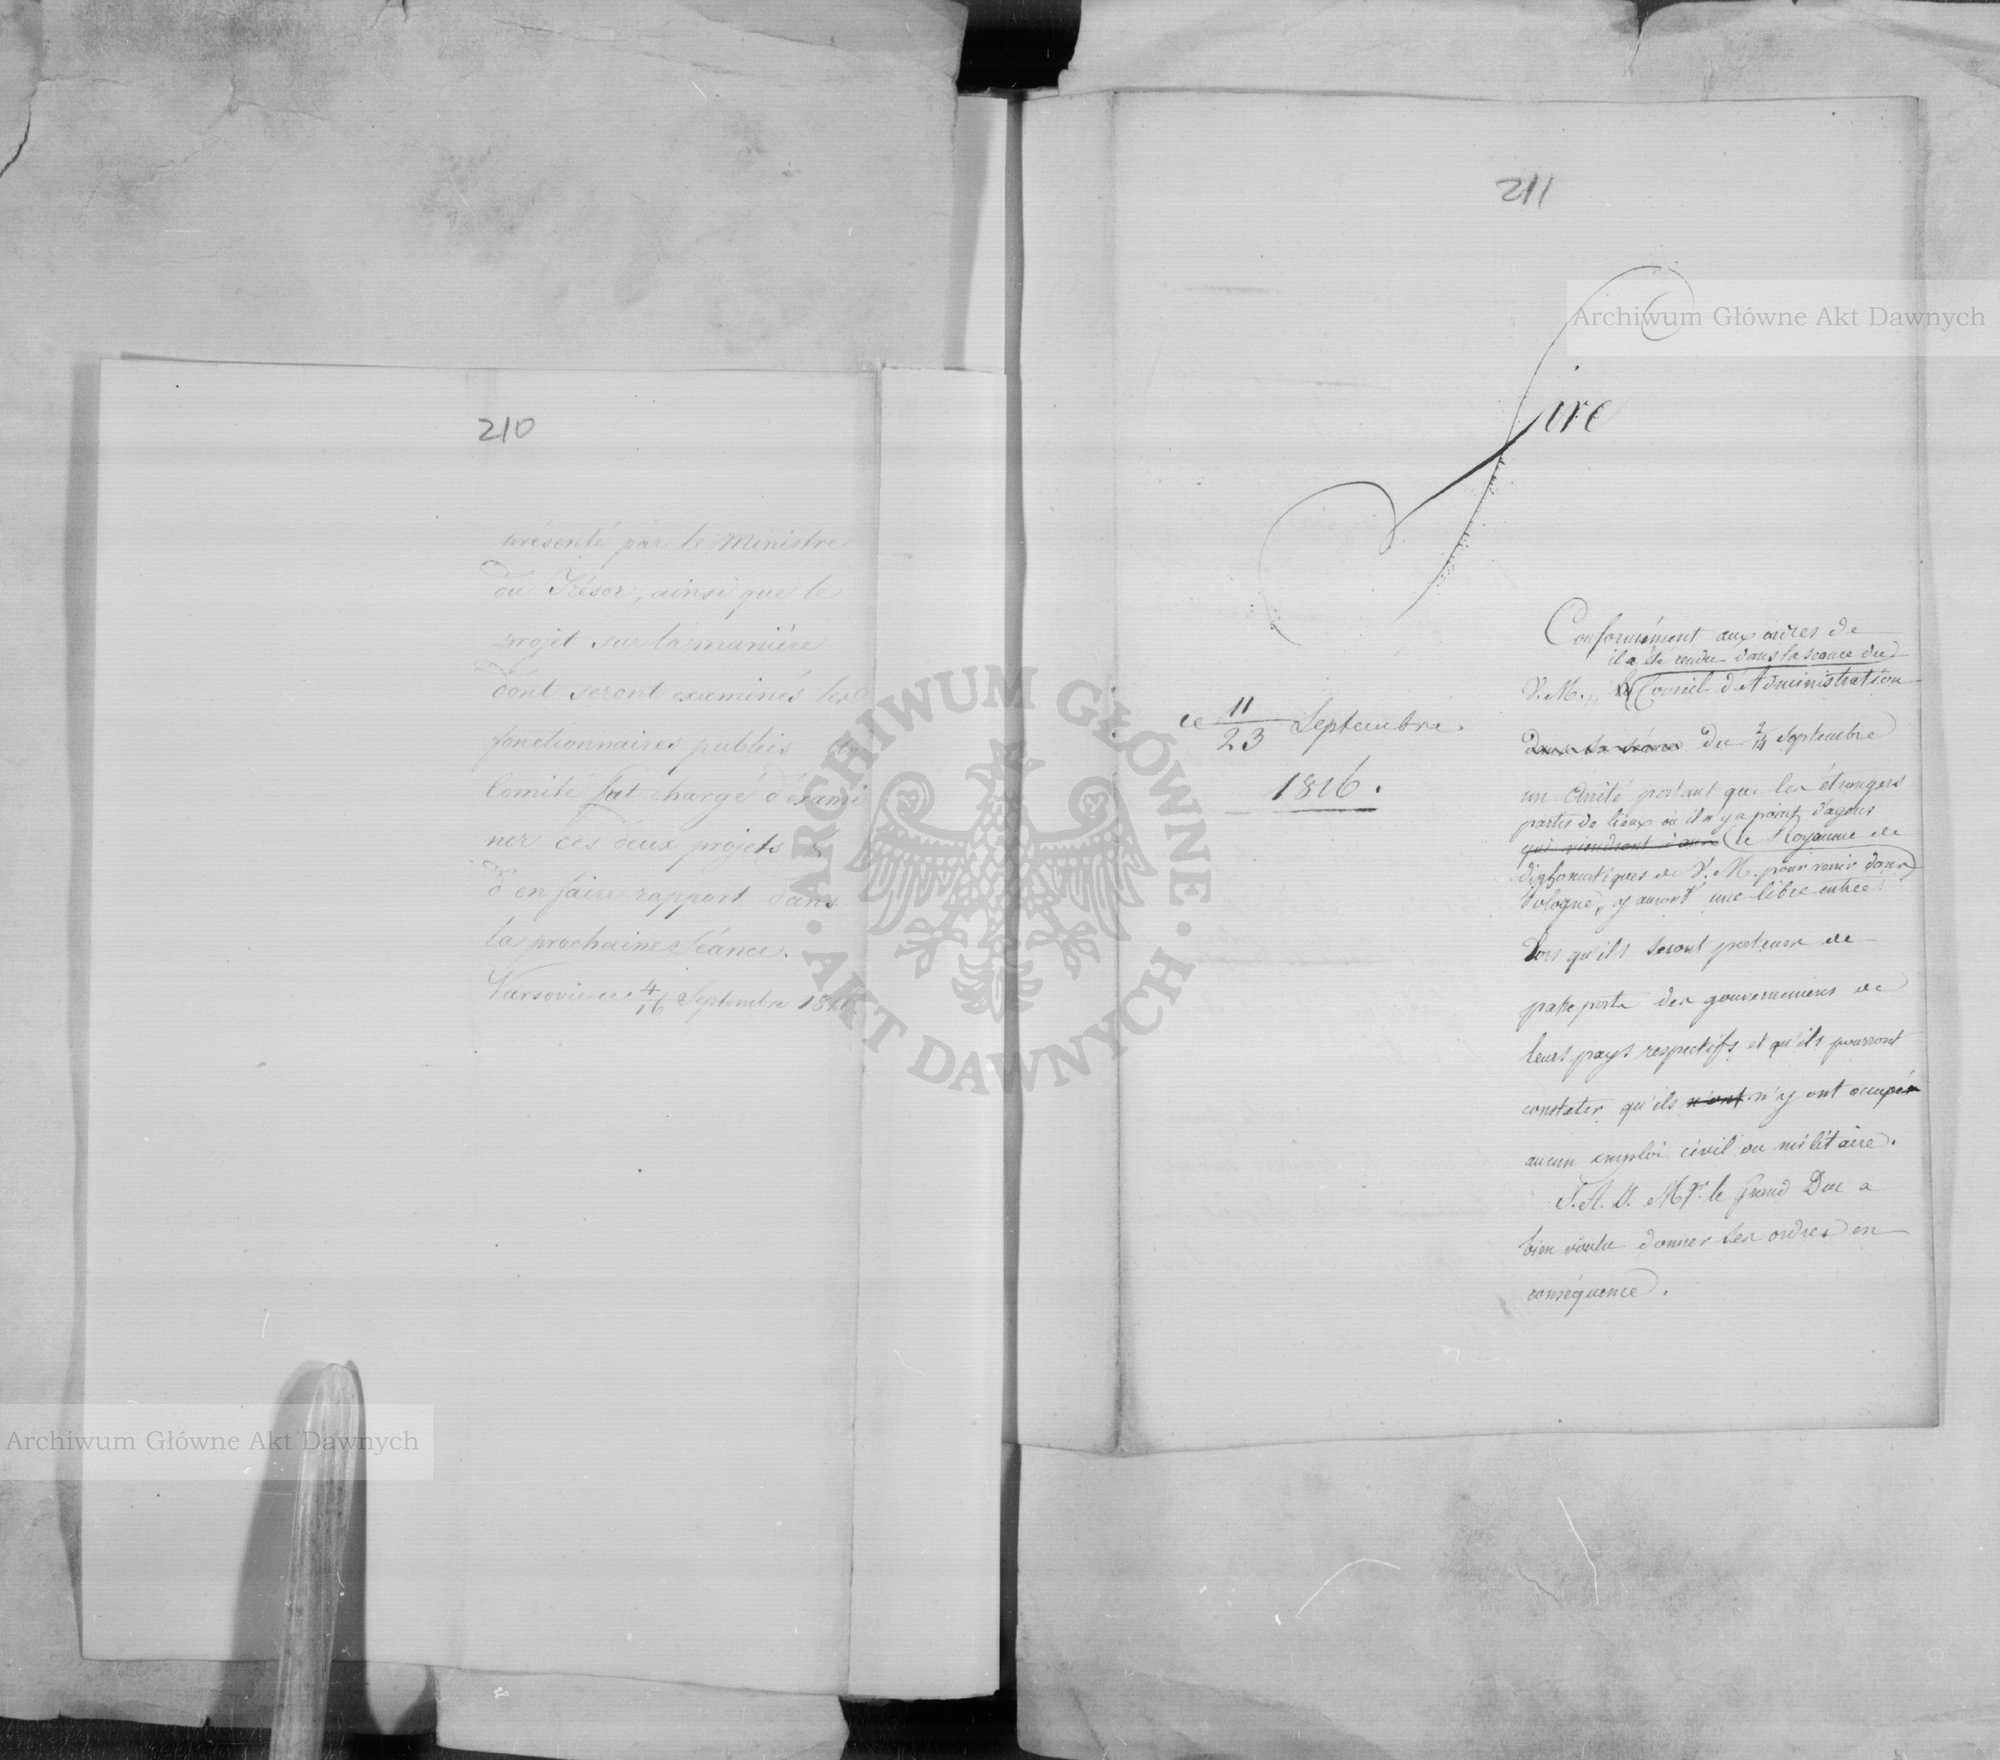 210
présenté par le Ministre
du Trésor, ainsi que le
projet sur la manière
dont seront examinés les
fonctionnaires publis. Un
Comité fut chargé d'éxami
ner ces deux projets &
d'en faire rapport dans
la prochaine Séance.
Varsovie ce 4/16 Septembre 1816.
211
Sire
ce 11/23 Septembre
1816.
Conformément aux ordres de
il a été rendu dans la seance du
V. M., le Conseil d'Administration
dans la séance du 2/14 Septembre
un Arrêté portant que les étrangers
partis de lieux ou il n'y a point d'agens
qui viendront dans le Royaume de
diplomatiques de V. M. pour venir dans
Pologne, y auront une libre entrée
lors qu'ils seront porteurs de
passeports des gouvernemens de
leurs pays respectifs et qu'ils pourront
constater qu'ils n'ont n'y ont occupés
aucun emploi civil ou militaire.
S. A. I. Mgr. le Grand Duc a
bien voulu donner les ordres en
conséquence.
Archiwum Główne Akt Dawnych
Archiwum Główne Akt Dawnych
ARCHIWUM GŁÓWNE · AKT DAWNYCH ·